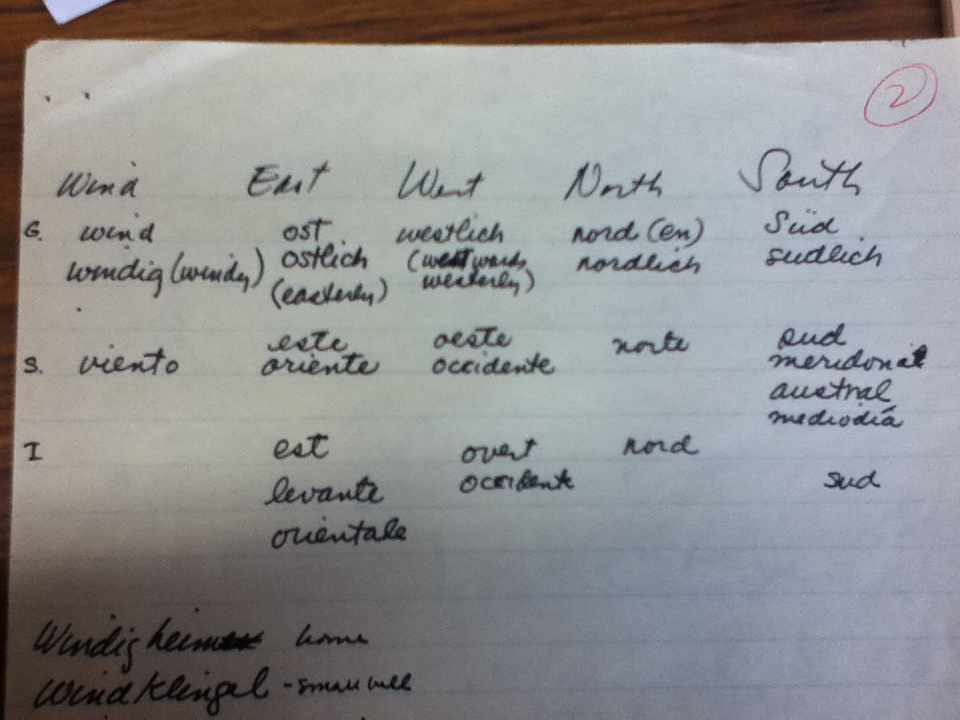 2
Wind East West North South
G. wind ost westlich nord (en) Süd
windig (windy) ostlich (westwards nordlich sudlich
(easterly) westerly)
este oeste norte sud
S. viento oriente occidente meridonal
austral
mediodía
I est ovest nord
levante occidente sud
orientale
Windigheim home
Wind Klingel - small bell